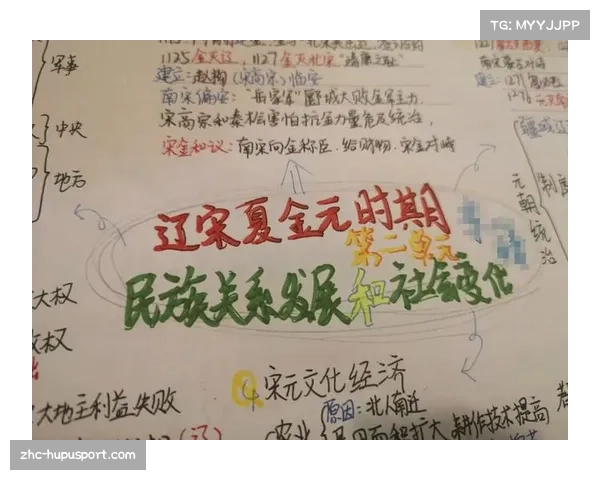 TG: MYYJJPP
军事
1125 金灭辽, 1127 金灭北宋"靖康之耻"
建立: 赵构 (宋高宗) 临安
南宋偏安: "岳家军" 郾城大败金军主力.
宋高宗和秦桧害怕抗金力量危及统治,
宋金和议: 南宋向金称臣. 给财物. 宋金对峙
建立: 1271
1276
中央
地方
疆域辽
元朝统治
制度
辽宋夏金元时期
第二单元
民族关系发展和社会变化
大权
政权
大地主利益失败
(辽)
4 宋元文化经济
原因: 北人南迁
农业
面积扩大 耕作技术提高
zhc-hupusport.com